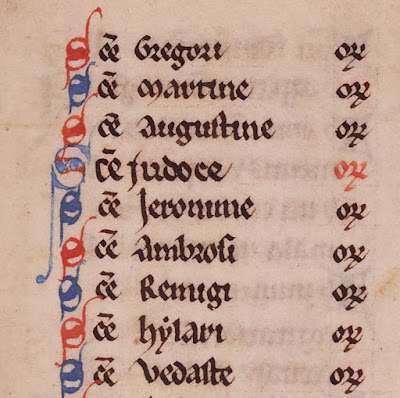 Sc̄e Gregori oꝝ
Sc̄e Martine oꝝ
Sc̄e Augustine oꝝ
Sc̄e Judoce oꝝ
Sc̄e Jeronime oꝝ
Sc̄e Ambrosi oꝝ
Sc̄e Remigi oꝝ
Sc̄e hylari oꝝ
Sc̄e Vedaste oꝝ